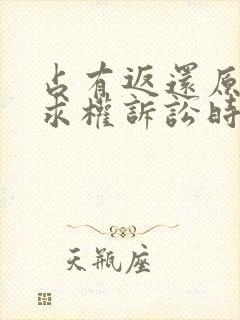 占有返還原
求權訴訟時
天瓶座